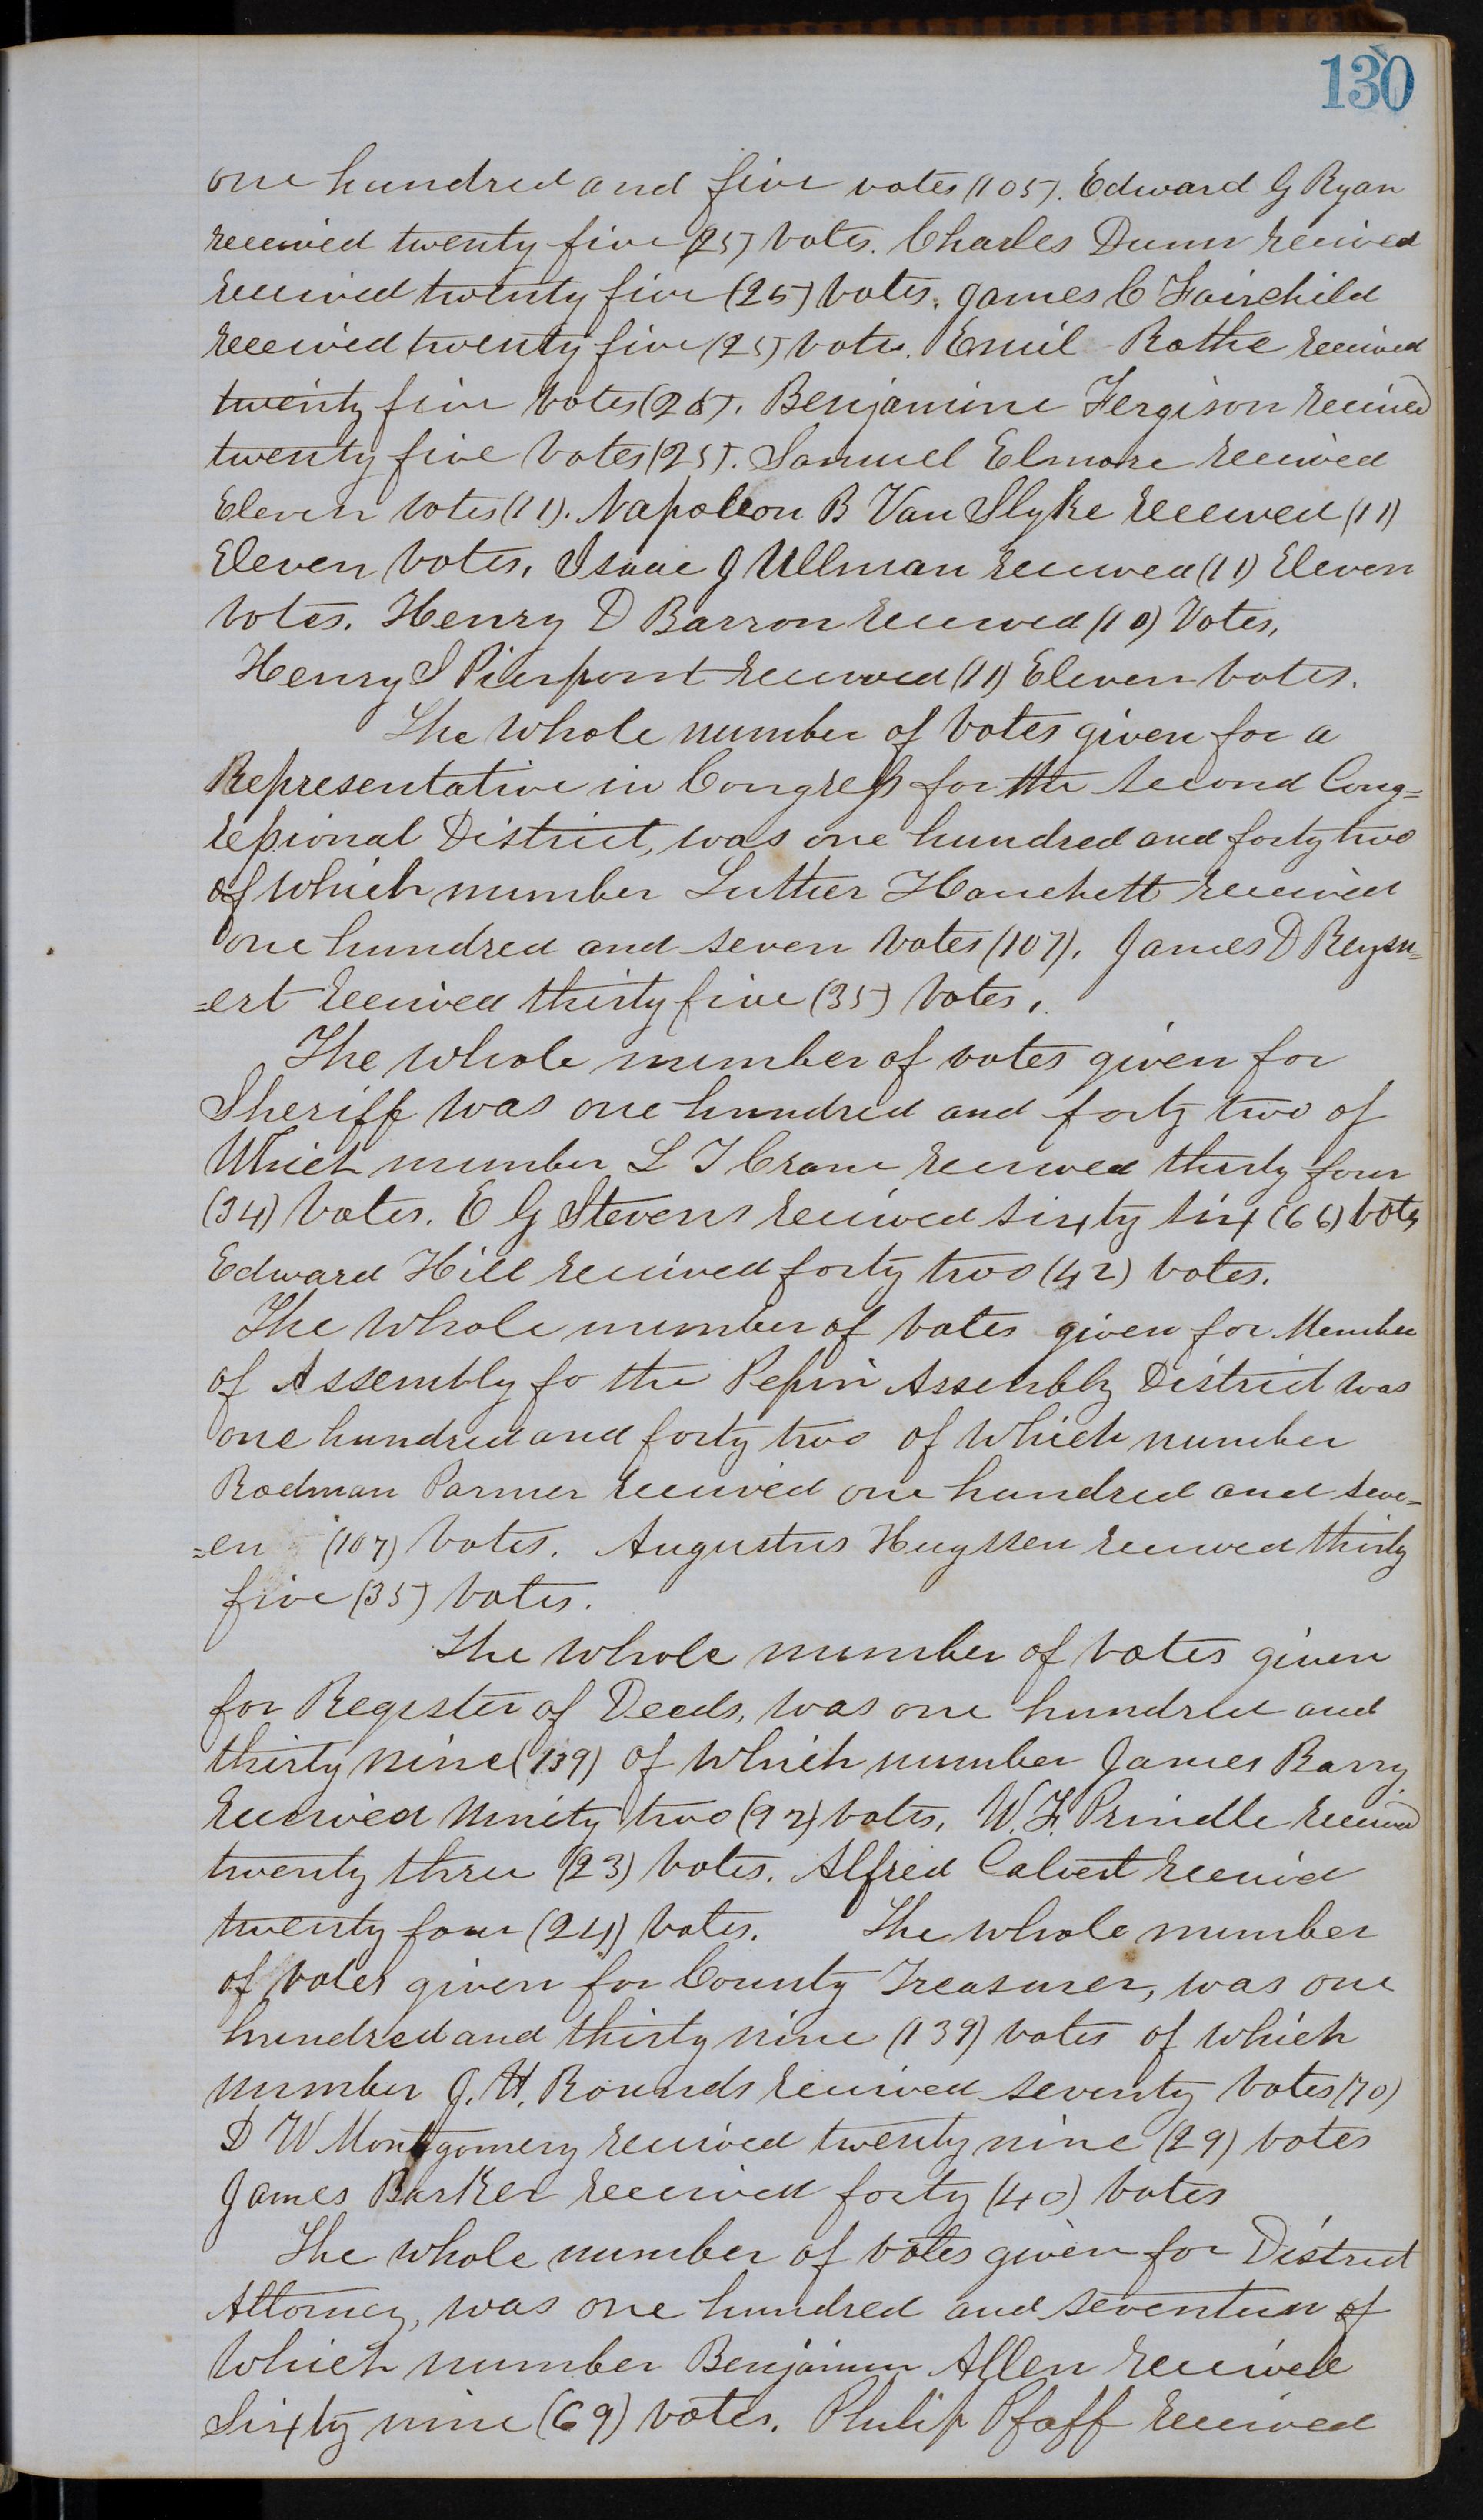 130
one hundred and five votes (105). Edward G Ryan
received twenty five (25) votes. Charles Dunn recived
received twenty five (25) votes. James C Fairchild
received twenty five (25) votes. Emil Rothe received
twenty five votes (25). Benjamine Fergison recived
twenty five votes (25). Samuel Elmore received
Eleven votes (11). Napoleon B Van Slyke received (11)
Eleven votes. Isaac J Ullman received (11) Eleven
votes. Henry D Barron received (10) Votes,
Henry S Pierpont received (11) Eleven votes.
The whole number of votes given for a
Representative in Congress for the second Cong=
ressional District, was one hundred and forty two
of which number Luther Hanchett received
one hundred and seven votes (107). James D Reym=
=ert received thirty five (35) votes.
The whole number of votes given for
Sheriff was one hundred and forty two of
Which number L T Crane received thirty four
(34) votes. E G Stevens received sixty six (66) vots
Edward Hill received forty two (42) votes.
The whole number of votes given for Member
of Assembly fo the Pepin Assembly District was
one hundred and forty two of which number
Rodman Parmer received one hundred and sev=
=en (107) votes. Augustus Huyssen received thirty
five (35) votes.
The whole number of votes given
for Register of Deeds, was one hundred and
thirty nine (139) of which number James Barry
received Ninety two (92) votes. W. F. Prindle received
twenty three (23) votes. Alfred Calvert receivd
twenty four (24) votes. The whole number
of votes given for County Treasurer, was one
hundred and thirty nine (139) votes of which
number J. H. Rounds received seventy votes (70)
D W Montgomery received twenty nine (29) votes
James Barker received forty (40) votes
The whole number of votes given for District
Attorney, was one hundred and seventeen of
which number Benjamin Allen received
Sixty nine (69) votes. Philip Pfaff received